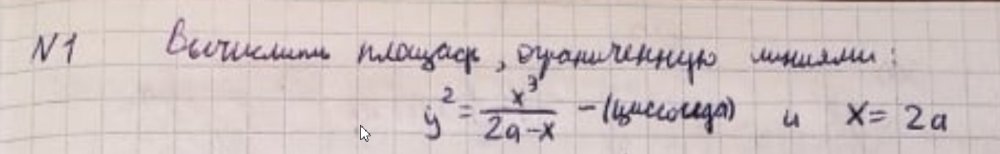 N1 Вычислить площадь, ограниченную линиями:
y² = x³/(2a-x) - (циссоида) и x = 2a